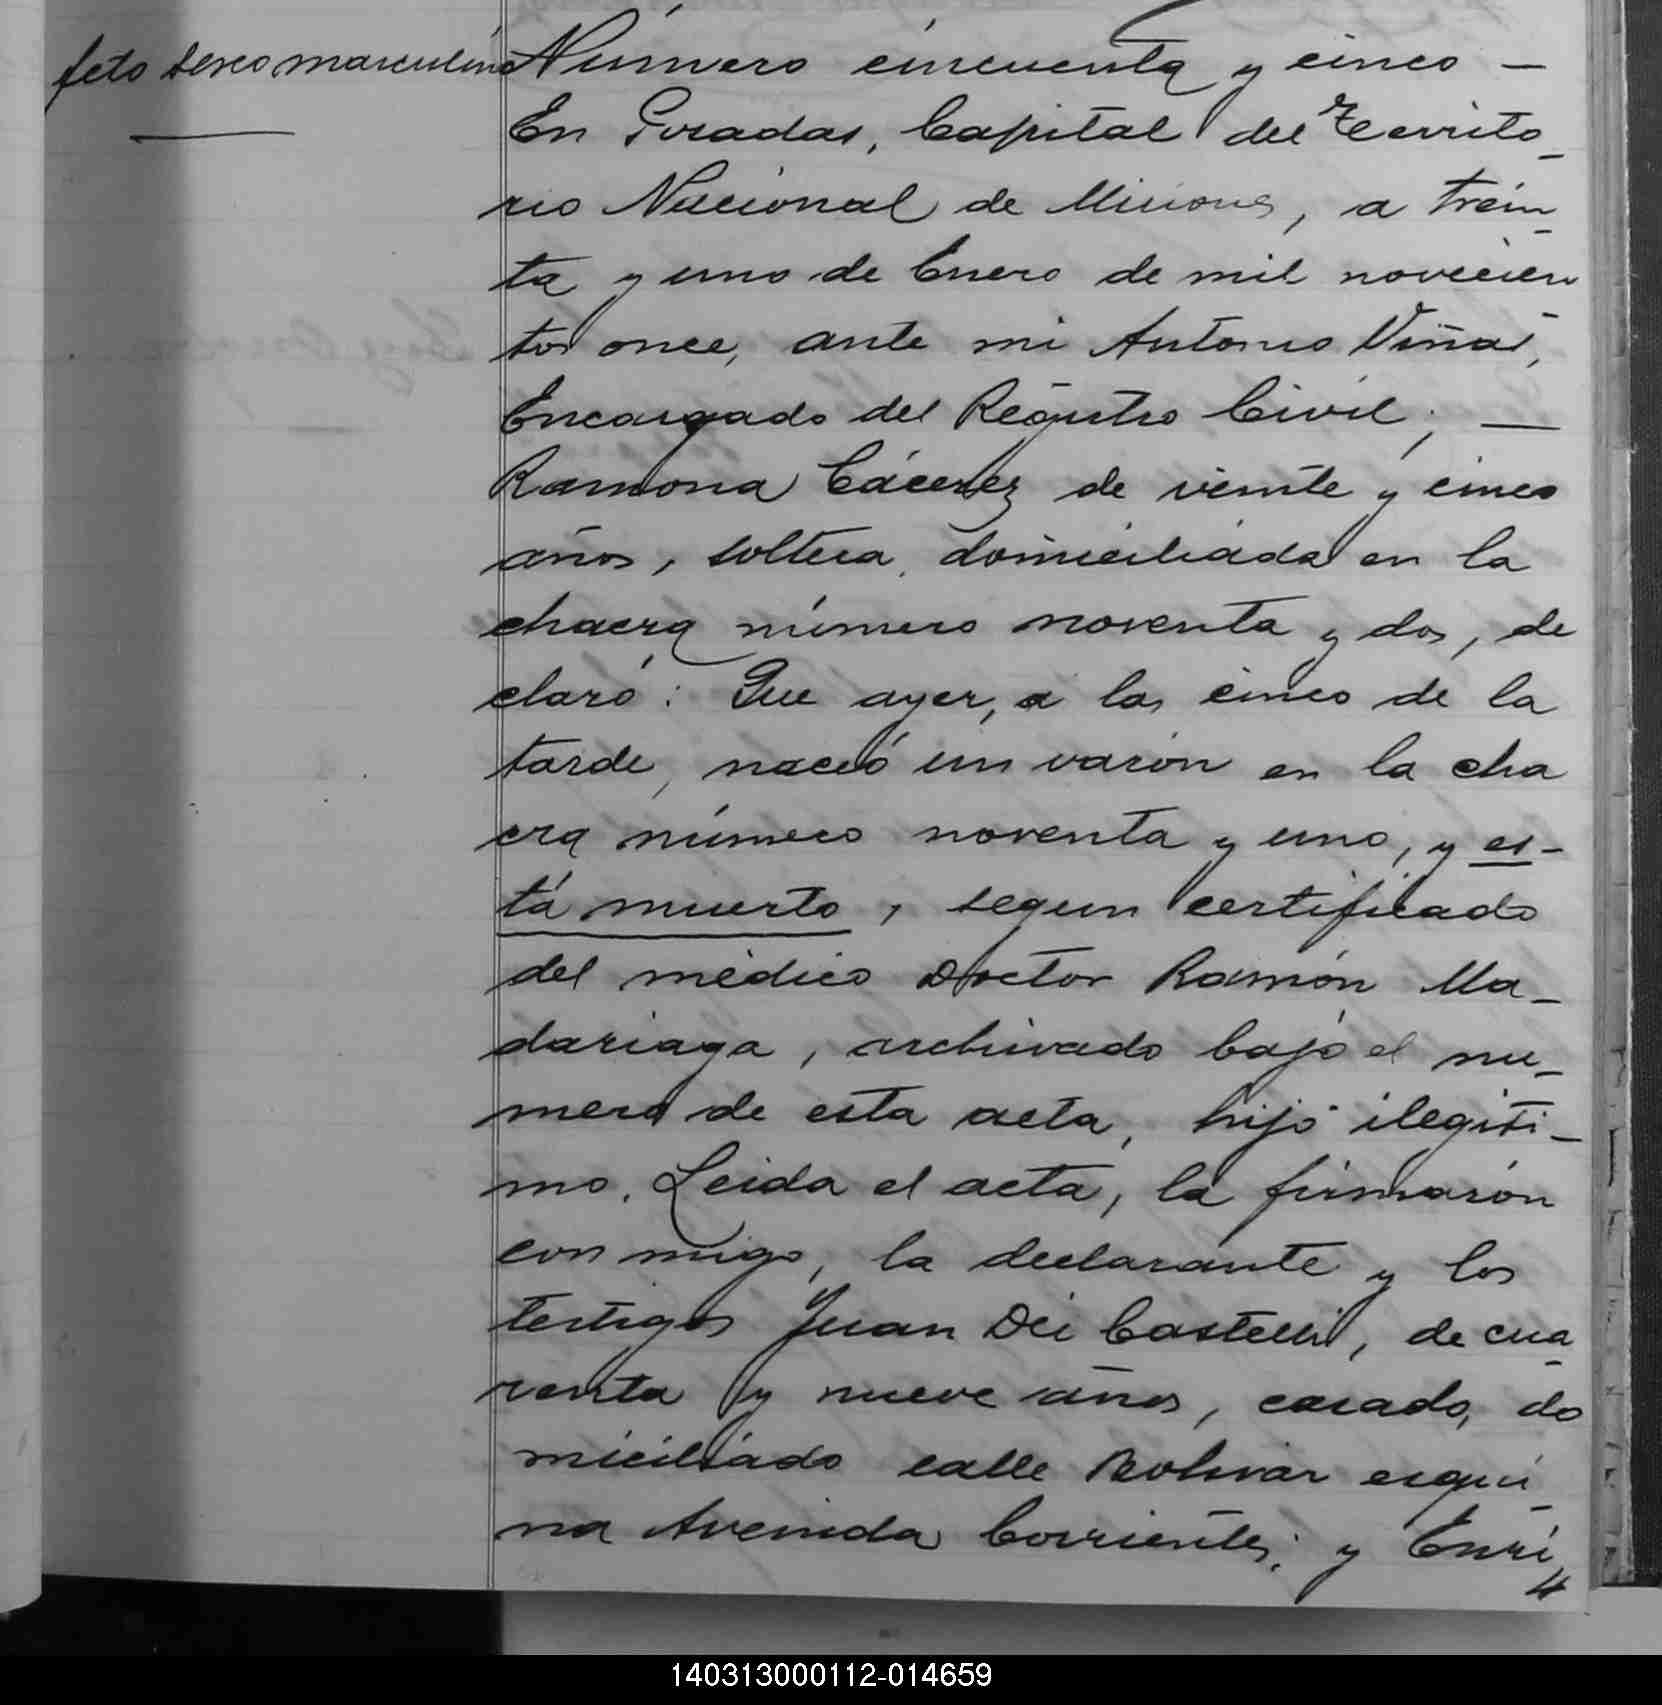 feto sexo masculino
Número cincuenta y cinco —
En Posadas, Capital del Territo-
rio Nacional de Misiones, a trein-
ta y uno de Enero de mil novecien
tos once, ante mi Antonio Viñas,
Encargado del Registro Civil, —
Ramona Cácerez de veinte y cinco
años, soltera, domiciliada en la
chacra número noventa y dos, de
claró: Que ayer, a las cinco de la
tarde, nació un varón en la cha
cra número noventa y uno, y es-
tá muerto, segun certificado
del médico Doctor Ramón Ma-
dariaga, archivado bajo el nu-
mero de esta acta, hijo ilegiti-
mo. Leida el acta, la firmarón
con migo, la declarante y los
testigos Juan Dei Castelli, de cua-
renta y nueve años, casado, do
miciliado calle Bolivar esqui-
na Avenida Corrientes; y Enri
140313000112-014659